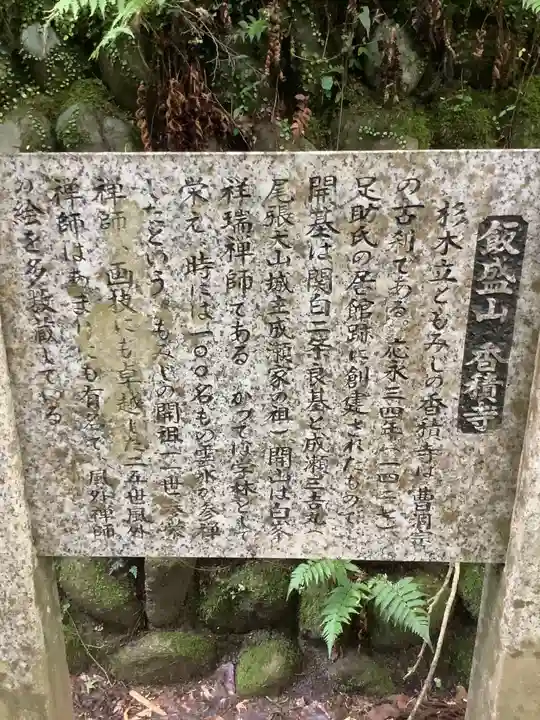 飯盛山 香積寺
杉木立ともみじの香積寺は、曹洞宗
の古刹である。応永三四年(一四二七)
足助氏の居館跡に創建されたもので
開基は関白二条良基と成瀬三吉丸(
尾張犬山城主成瀬家の祖)開山は白峯
祥瑞禅師である かつては学林として
栄え、時には一〇〇名もの雲水が参禅
したという。もみじの開祖十一世三栄
禅師、画技にも卓越した二五世風外
禅師はあまりにも有名で 風外禅師
の絵を多数蔵している